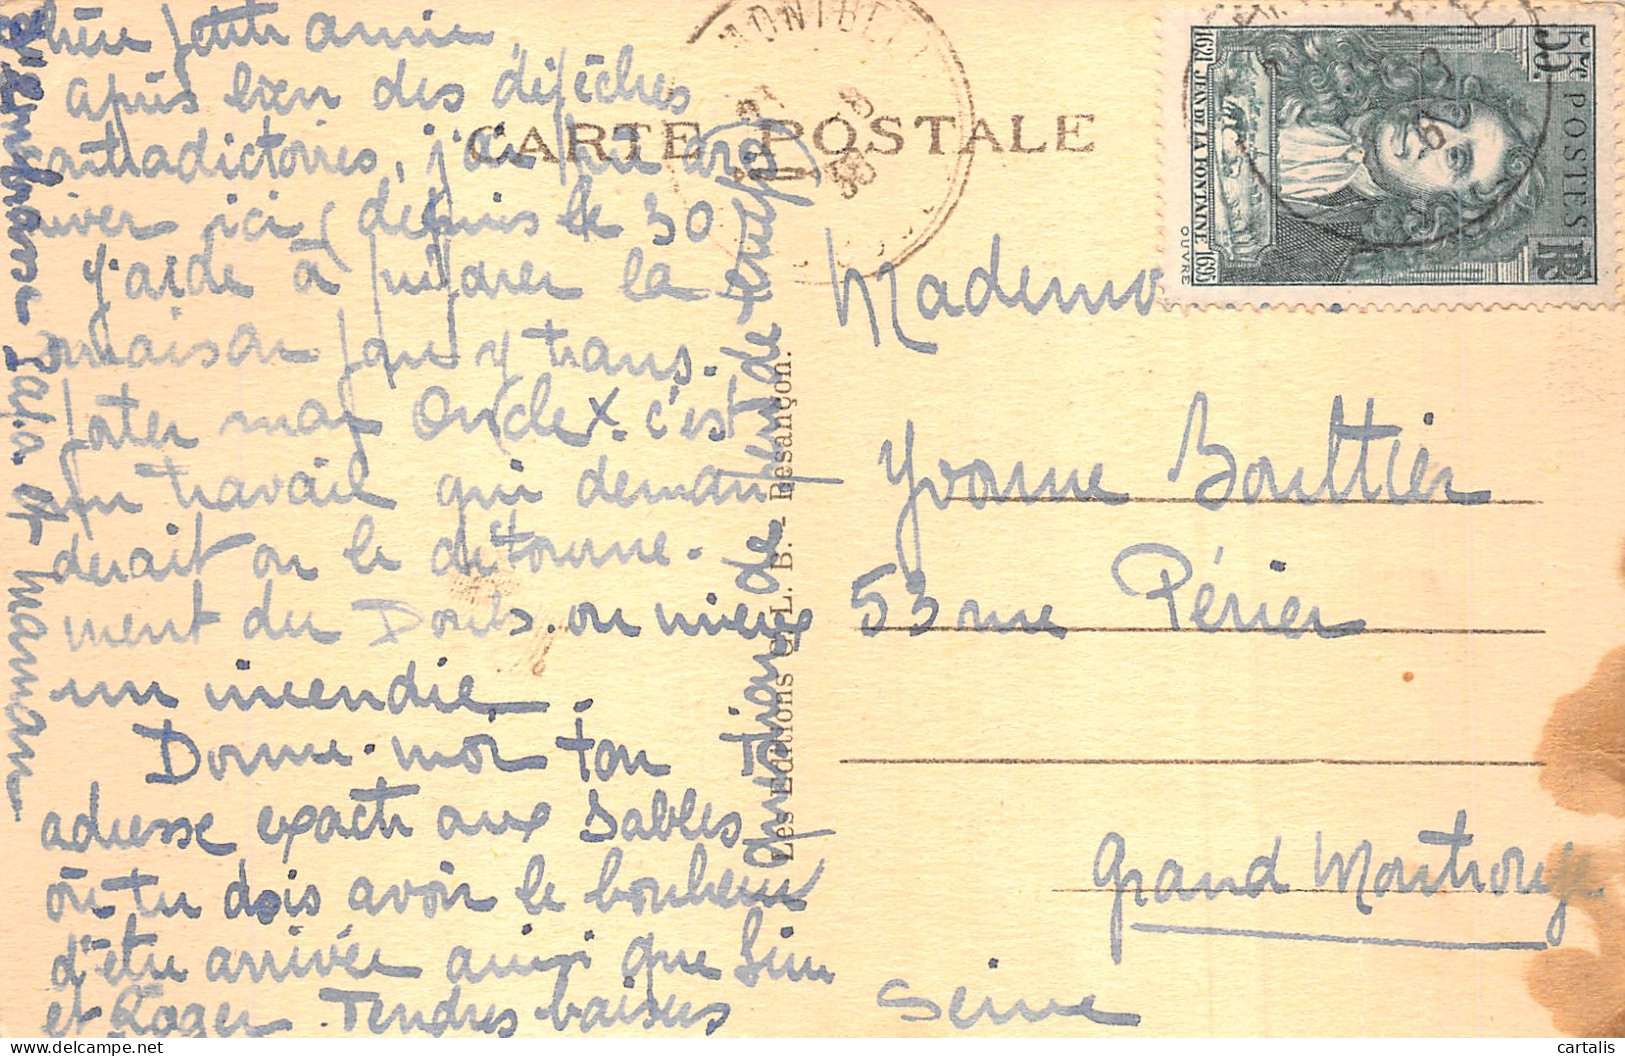 Chère petite amie,
après bien des dépêches
contradictoires, j'ai pu arri
river ici (depuis le 30
j'aide à préparer la
maison pour y trans-
porter mon
c'est
un travail qui deman
derait ou le détourne-
ment du Doubs. ou mieux
un incendie.
Donne-moi ton
adresse exacte aux Sables
où tu dois avoir le bonheur
d'être arrivée ainsi que
et Roger. Tendres baisers
Papa et Maman
de
CARTE POSTALE
Les Editions C. L. B. - Besançon.
MONTBEL
38
1621 JEAN DE LA FONTAINE 1695
OUVRE
55c
POSTES
RF
Mademo
Yvonne Boultier
53 rue Périer
Grand Montrouge
Seine
cartalis